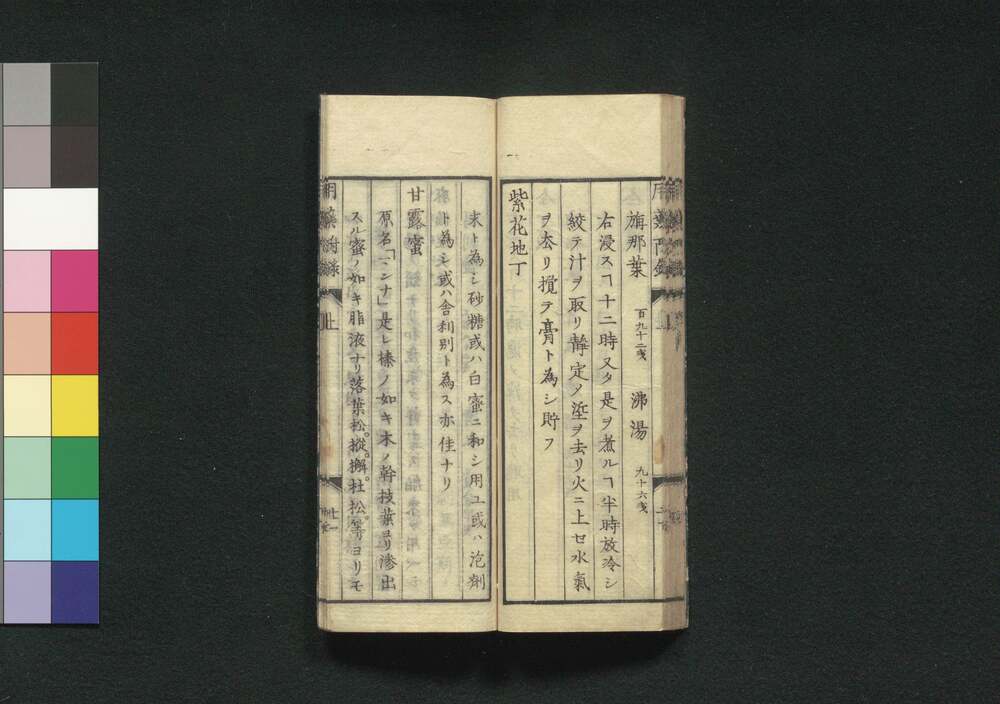 旃那葉 百九十二戔 沸湯 九十六戔
右浸スヿ十二時又タ是ヲ煮ルヿ半時放冷シ
絞テ汁ヲ取リ靜定メ埿ヲ去リ火ニ上セ水氣
ヲ去リ攪テ膏ト為シ貯フ
紫花地丁
末ト為シ砂糖或ハ白蜜ニ和シ用ユ或ハ泡劑
ト為シ或ハ舎利別ト為ス亦佳ナリ
甘露蜜
原名「マンナ」是レ榛ノ如キ木ノ幹枝葉ヨリ滲出
スル蜜ノ如キ脂液ナリ落葉松。樅。檞。杜松。等ヨリモ